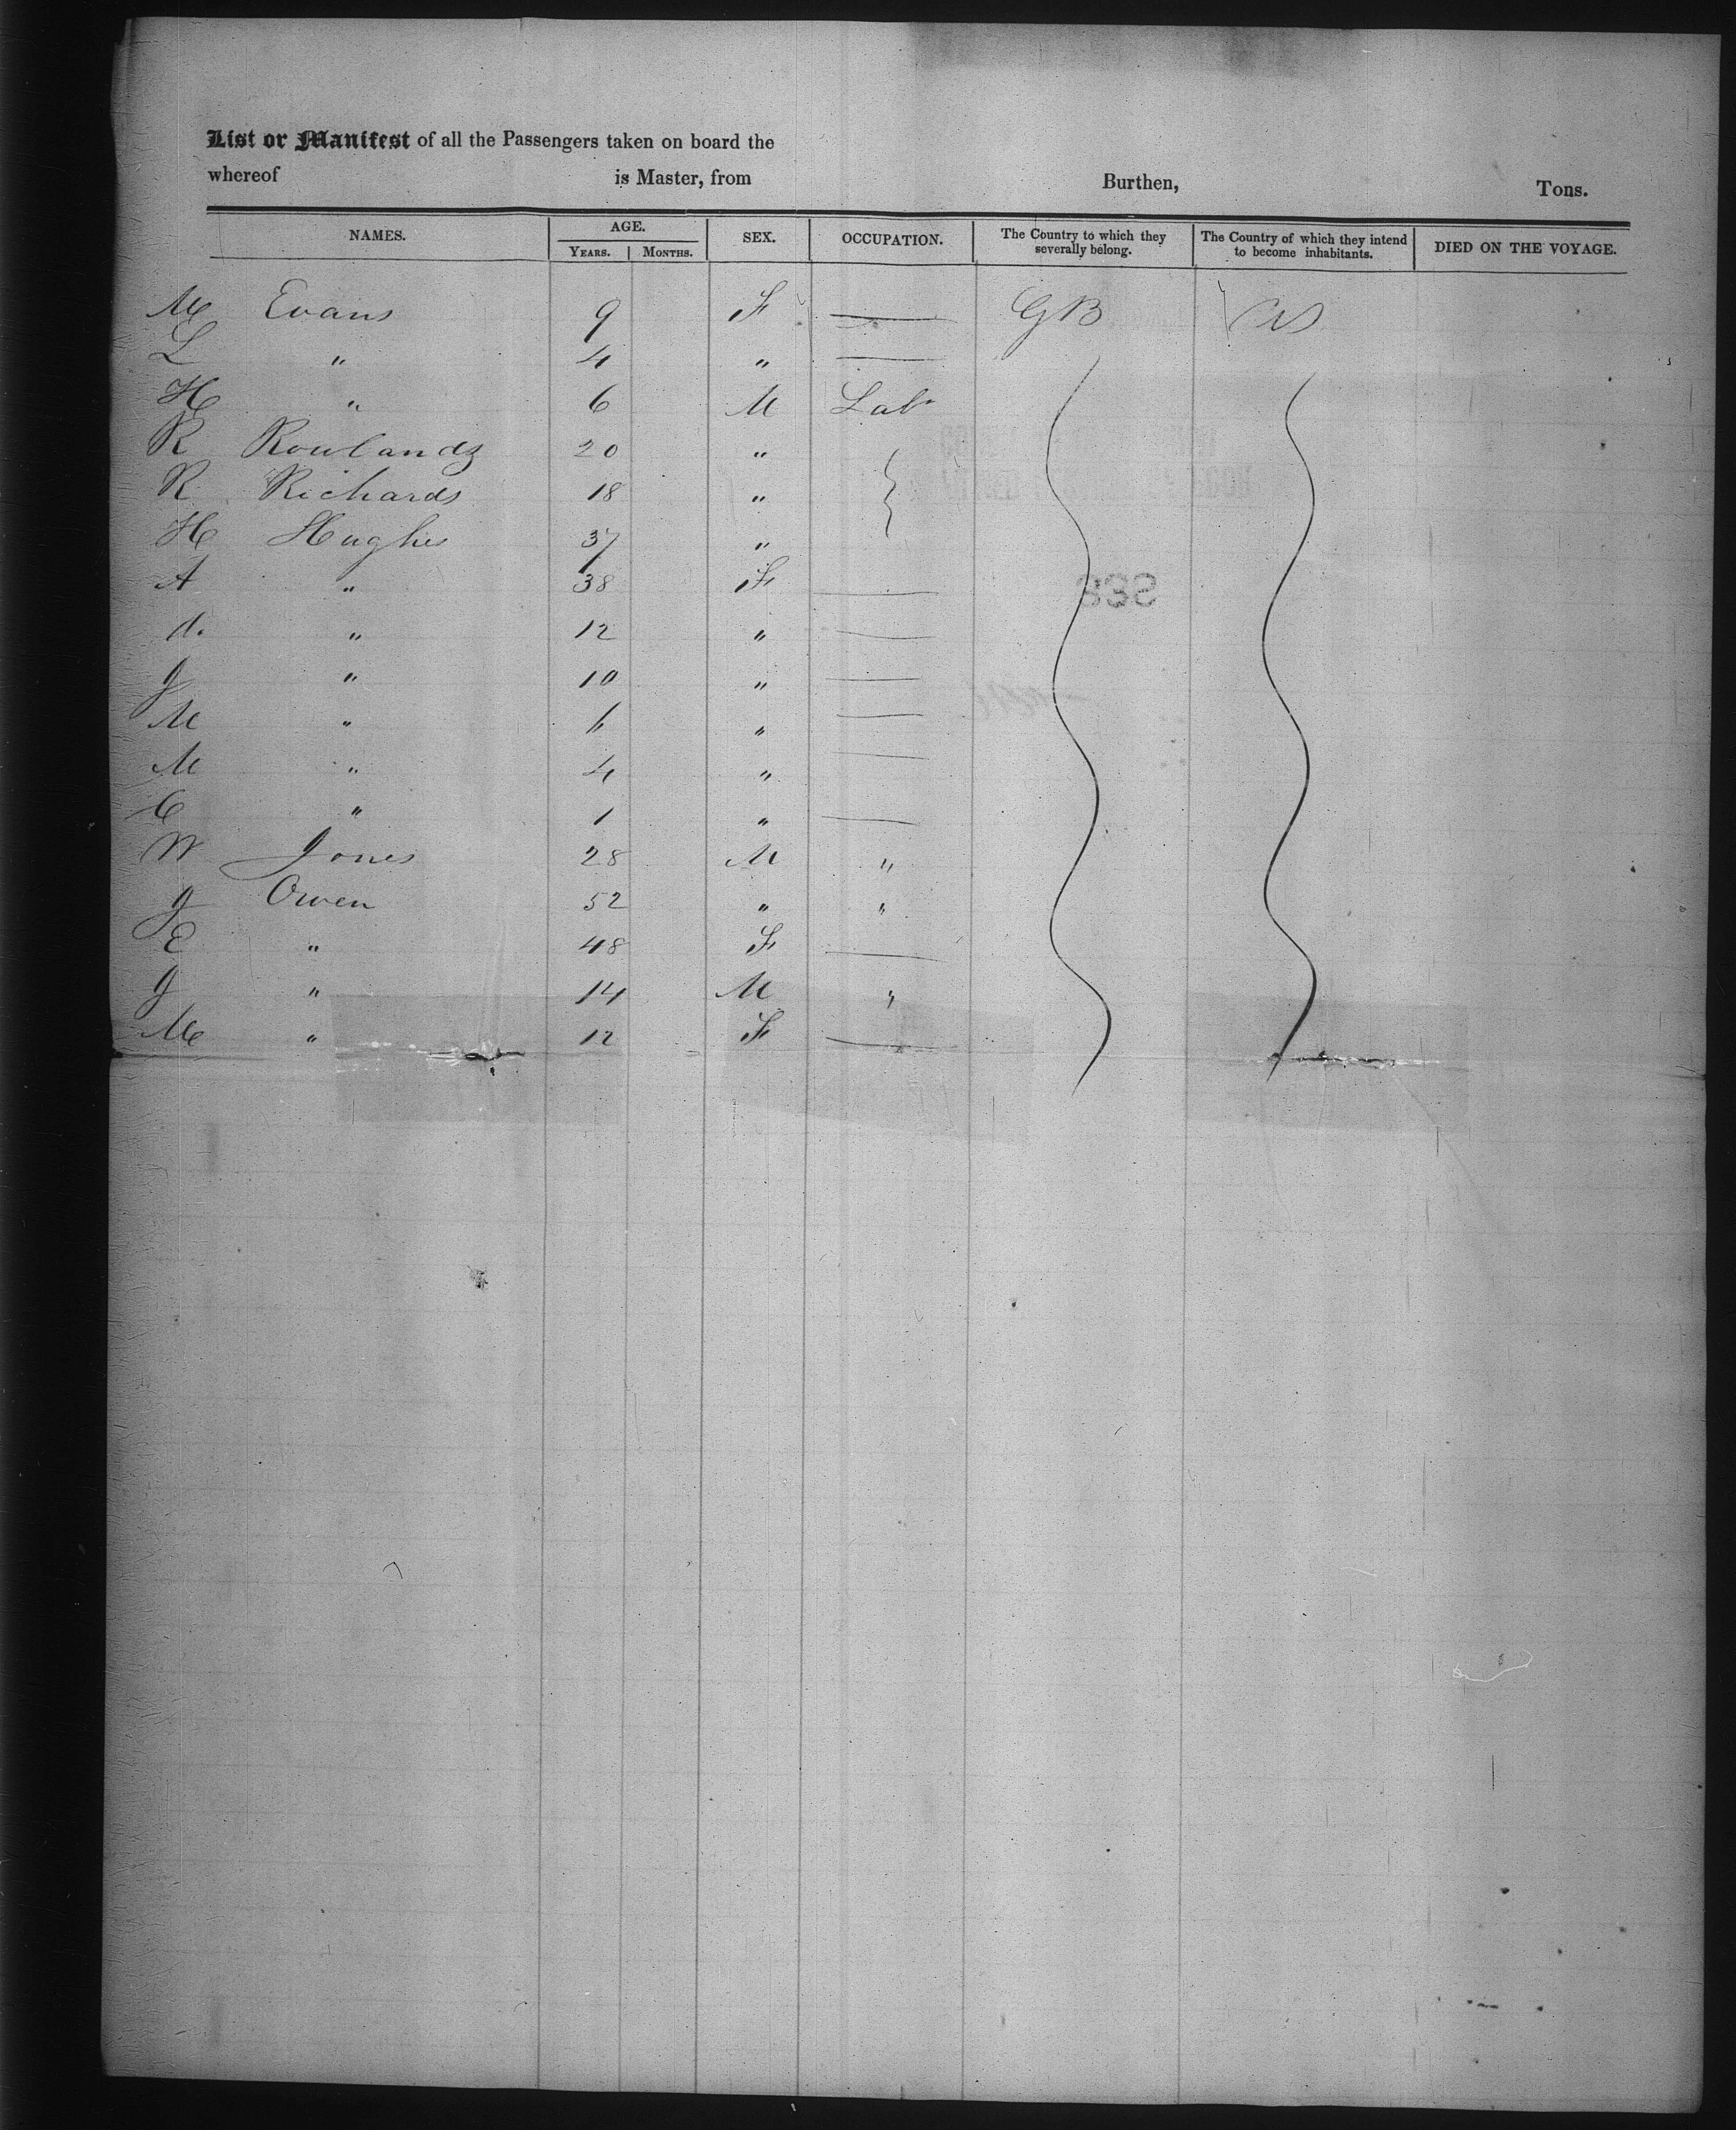 List or Manifest of all the Passengers taken on board the
whereof is Master, from Burthen, Tons.
NAMES. AGE. YEARS. MONTHS. SEX. OCCUPATION. The Country to which they severally belong. The Country of which they intend to become inhabitants. DIED ON THE VOYAGE.
M Evans 9 F — GB US
L " 4 " —
H " 6 M Labr
R Rowlands 20 "
R Richards 18 "
H Hughes 37 "
A " 38 F —
d. " 12 " —
J " 10 " —
M " 6 " —
M " 4 " —
C " 1 " —
W Jones 28 M "
J Owen 52 " "
E " 48 F —
J " 14 M "
M " 12 F —